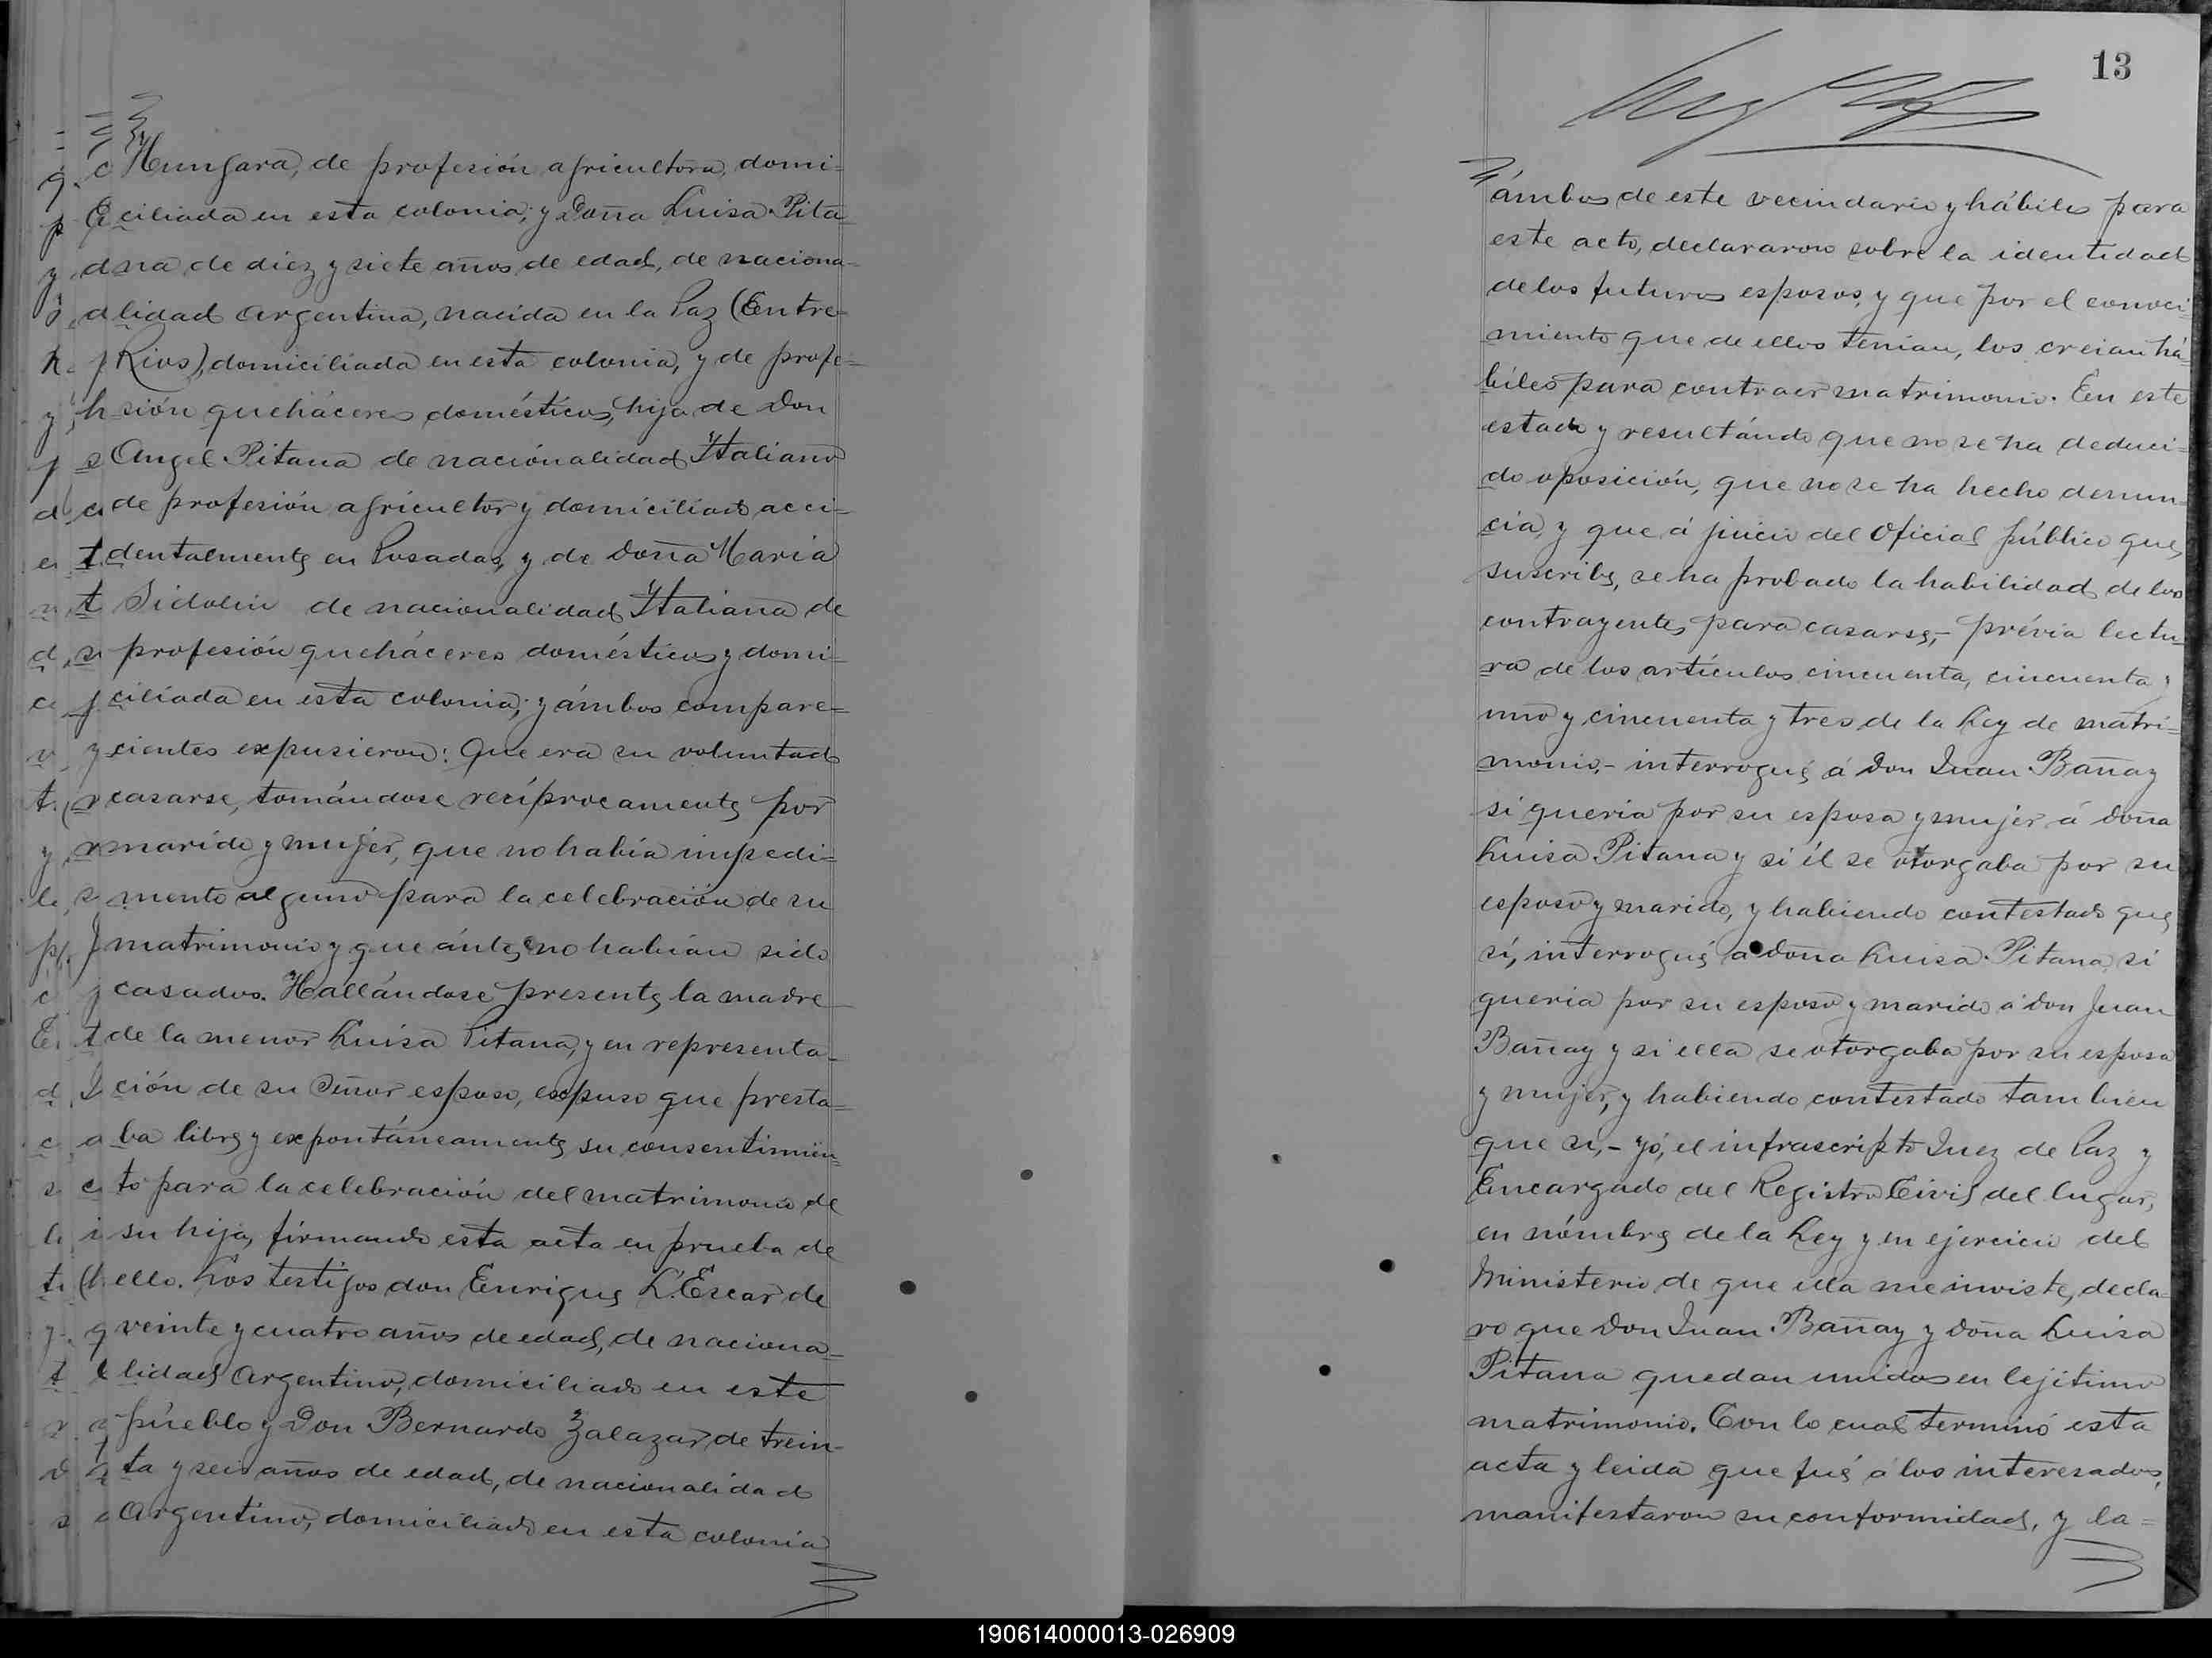 Hungara, de profesión agricultora, domi-
ciliada en esta colonia; y Doña Luisa Pita-
na de diez y siete años de edad, de naciona-
lidad Argentina, nacida en la Paz (Entre-
Rios), domiciliada en esta colonia, y de profe-
sión queháceres domésticos, hija de Don
Angel Pitana de nacionalidad Italiano
de profesión agricultor y domiciliado acci-
dentalmente en Posadas, y de Doña Maria
de nacionalidad Italiana de
profesión queháceres domésticos y domi-
ciliada en esta colonia; y ámbos compare-
cientes expusieron: Que era su voluntad
casarse, tomándose recíprocamente por
marido y mujer, que no había impedi-
mento alguno para la celebración de su
matrimonio y que ántes no habían sido
casados. Hallándose presente la madre
de la menor Luisa Pitana, y en representa-
ción de su Señor esposo, expuso que presta-
ba libre y expontáneamente su consentimien-
to para la celebración del matrimonio de
su hija, firmando esta acta en prueba de
ello. Los testigos don Enrique L. Escar de
veinte y cuatro años de edad, de naciona-
lidad Argentino, domiciliado en este
pueblo y Don Bernardo Zalazar de trein-
ta y seis años de edad, de nacionalidad
Argentino, domiciliado en esta colonia
13
ámbos de este vecindario y hábiles para
este acto, declararon sobre la identidad
de los futuros esposos, y que por el conoci-
miento que de ellos tenian, los creian há-
biles para contraer matrimonio. En este
estado y resultándo que no se ha deduci-
do oposición, que no se ha hecho denun-
cia, y que á juicio del Oficial público que
suscribe, se ha probado la habilidad de los
contrayentes para casarse,- prévia lectu-
ra de los artículos cincuenta, cincuenta y
uno y cincuenta y tres de la Ley de matri-
monio,- interrogué á Don Juan Bañay
si queria por su esposa y mujer á doña
Luisa Pitana y si él se otorgaba por su
esposo y marido, y habiendo contestado que
sí, interrogué a Doña Luisa Pitana si
queria por su esposo y marido á Don Juan
Bañay y si ella se otorgaba por su esposa
y mujer, y habiendo contestado tambien
que si,- yó, el infrascripto Juez de Paz y
Encargado del Registro Civil del lugar,
en nómbre de la Ley y en ejercicio del
Ministerio de que ella me inviste, decla-
ro que Don Juan Bañay y Doña Luisa
Pitana quedan unidos en lejítimo
matrimonio. Con lo cual terminó esta
acta y leida que fué á los interesados,
manifestaron su conformidad, y la=
190614000013-026909